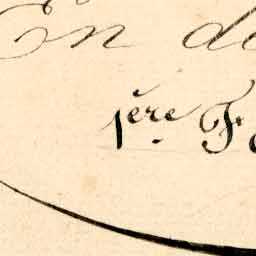 En d
1ère F